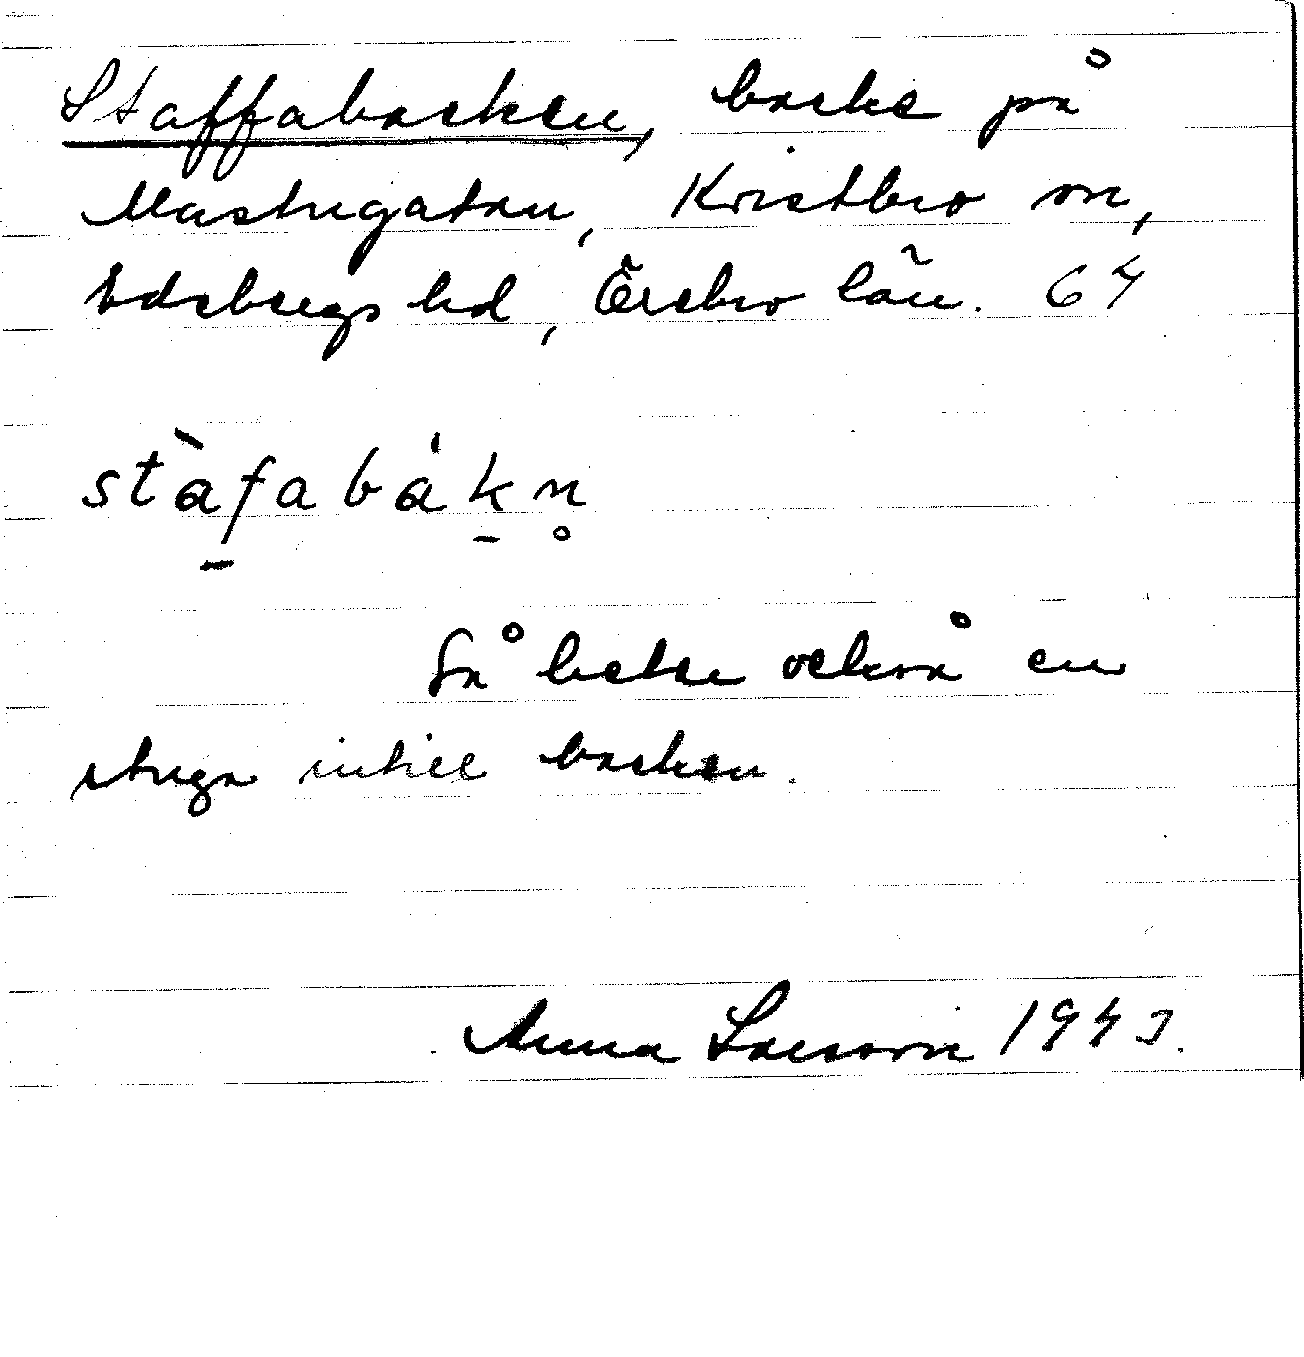 Staffabacken, backe på
Mastugatan, Kvistbro sn,
Edsbergs hd, Örebro län. 64
stàfabákn̥
Så hette också en
stuga intill backen.
Anna Larsson 1943.